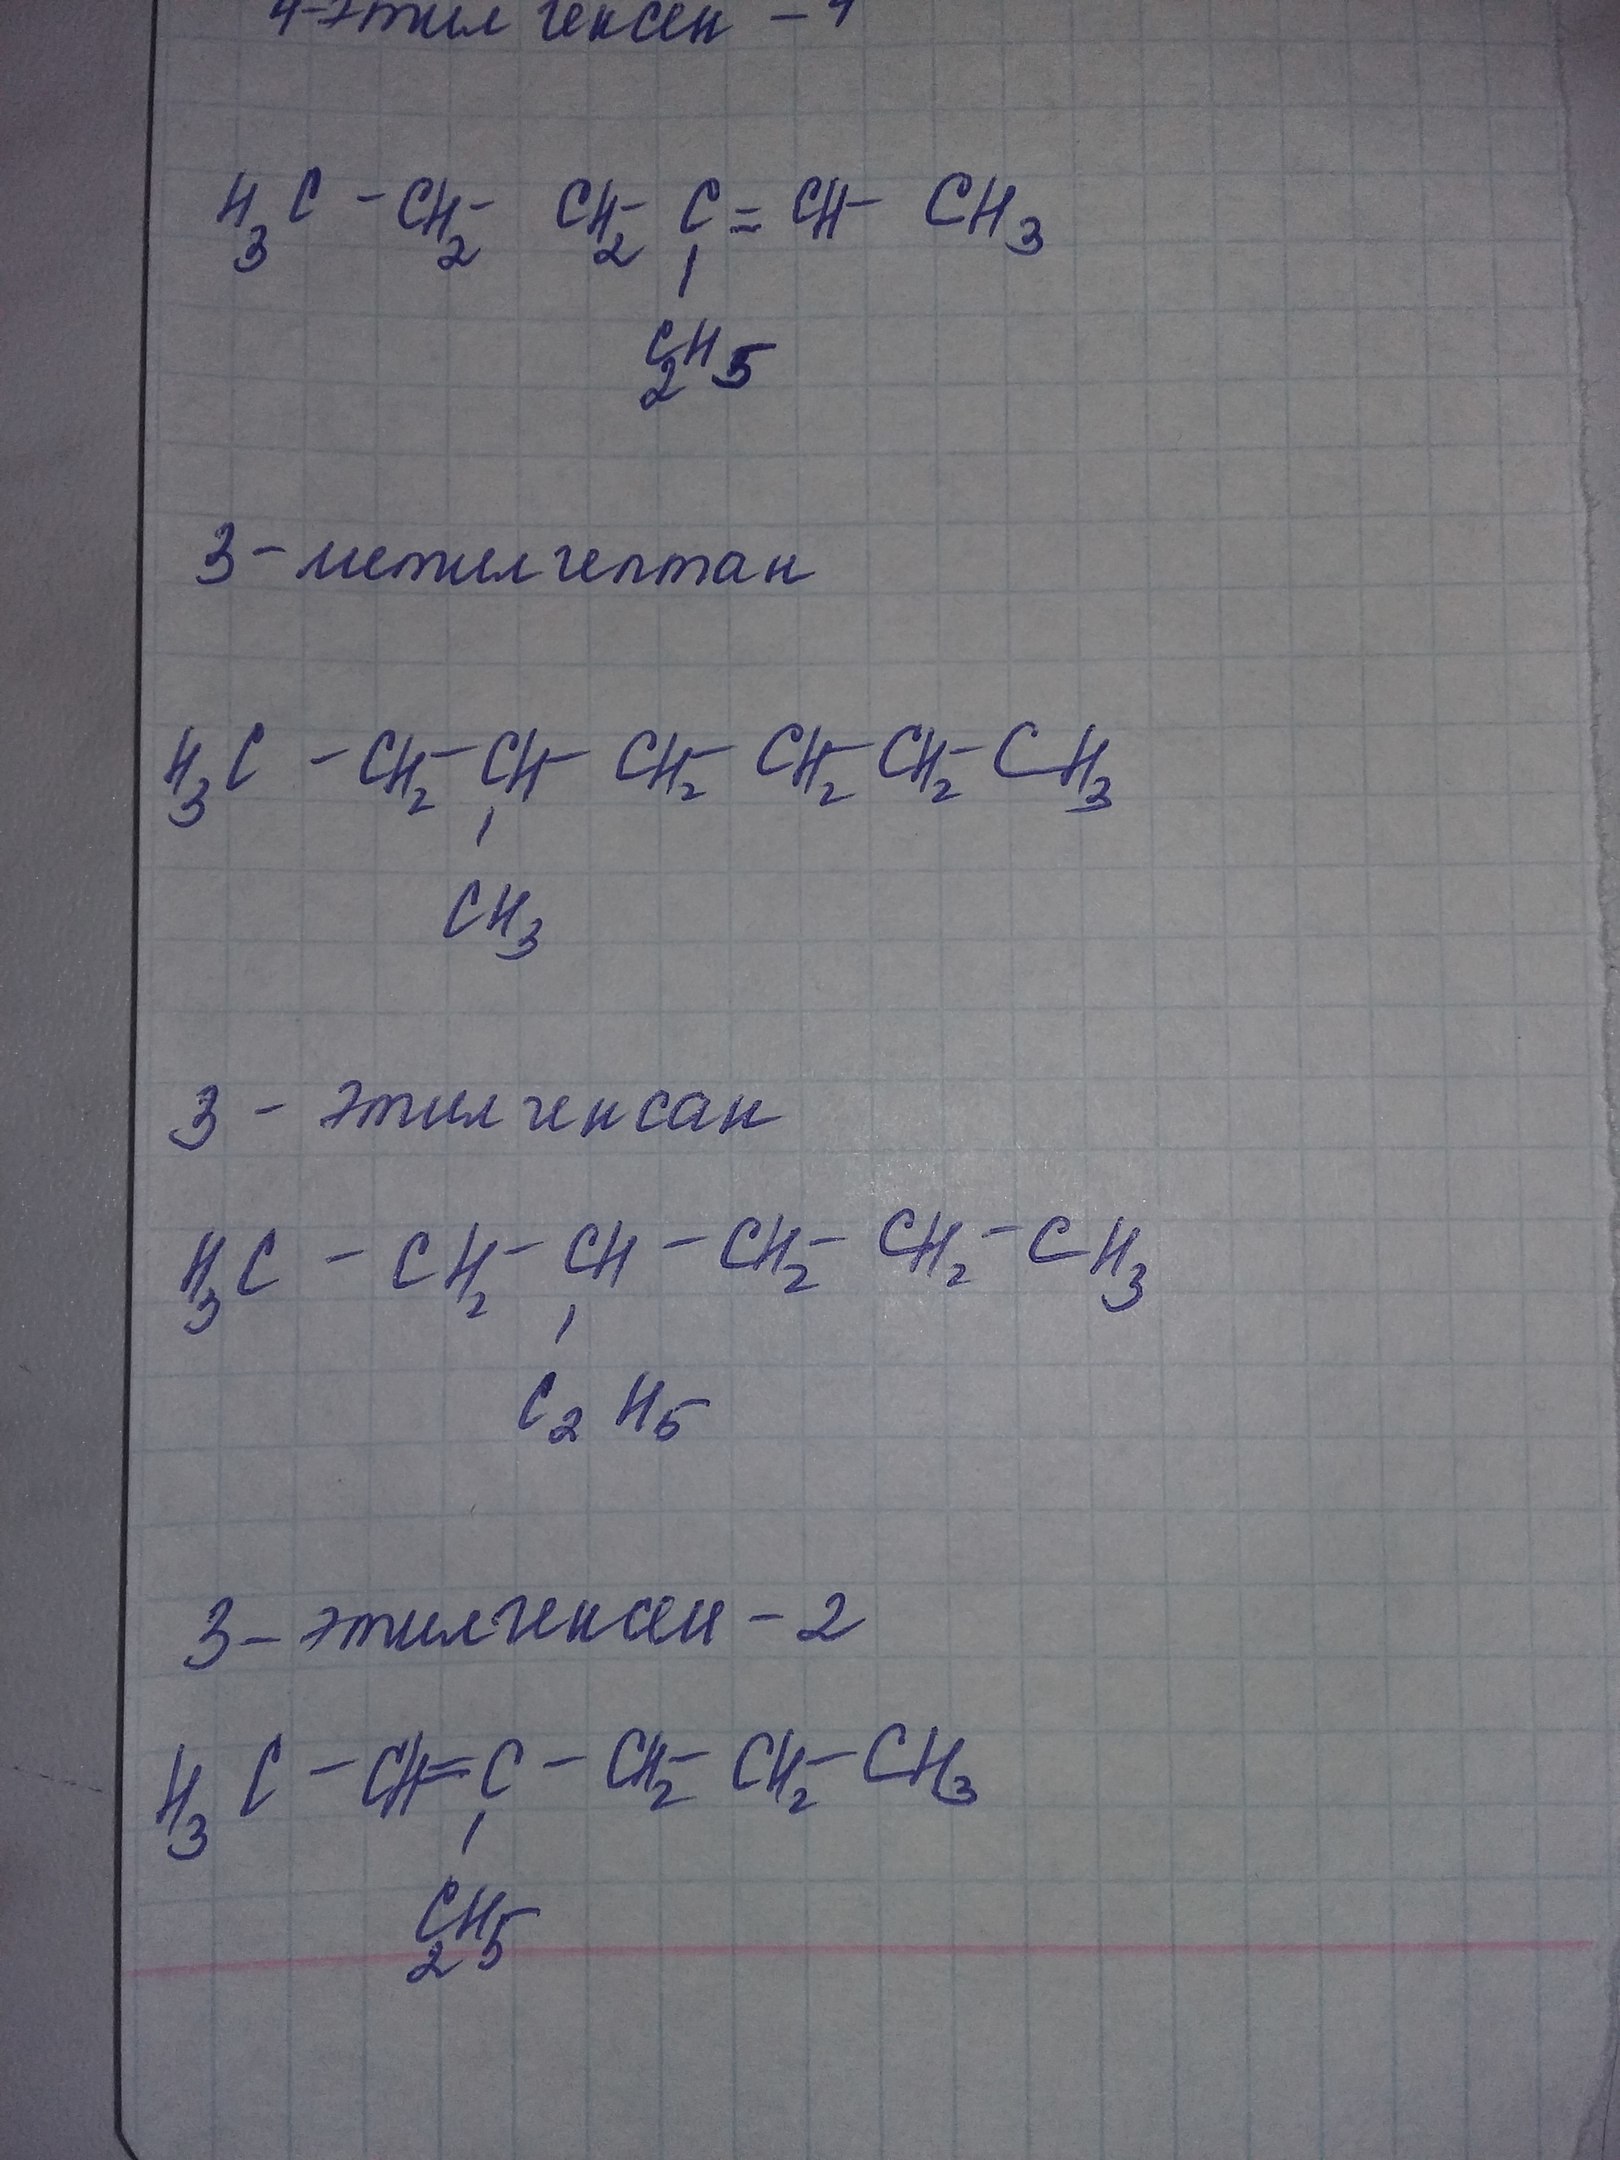 4-этил гексен - 4
H3C - CH2 - CH2 - C = CH - CH3
C2H5
3- метилгептан
H3C - CH2 - CH - CH2 - CH2 - CH2 - CH3
CH3
3 - этилгексан
H3C - CH2 - CH - CH2 - CH2 - CH3
C2H5
3- этилгексен - 2
H3C - CH = C - CH2 - CH2 - CH3
C2H5